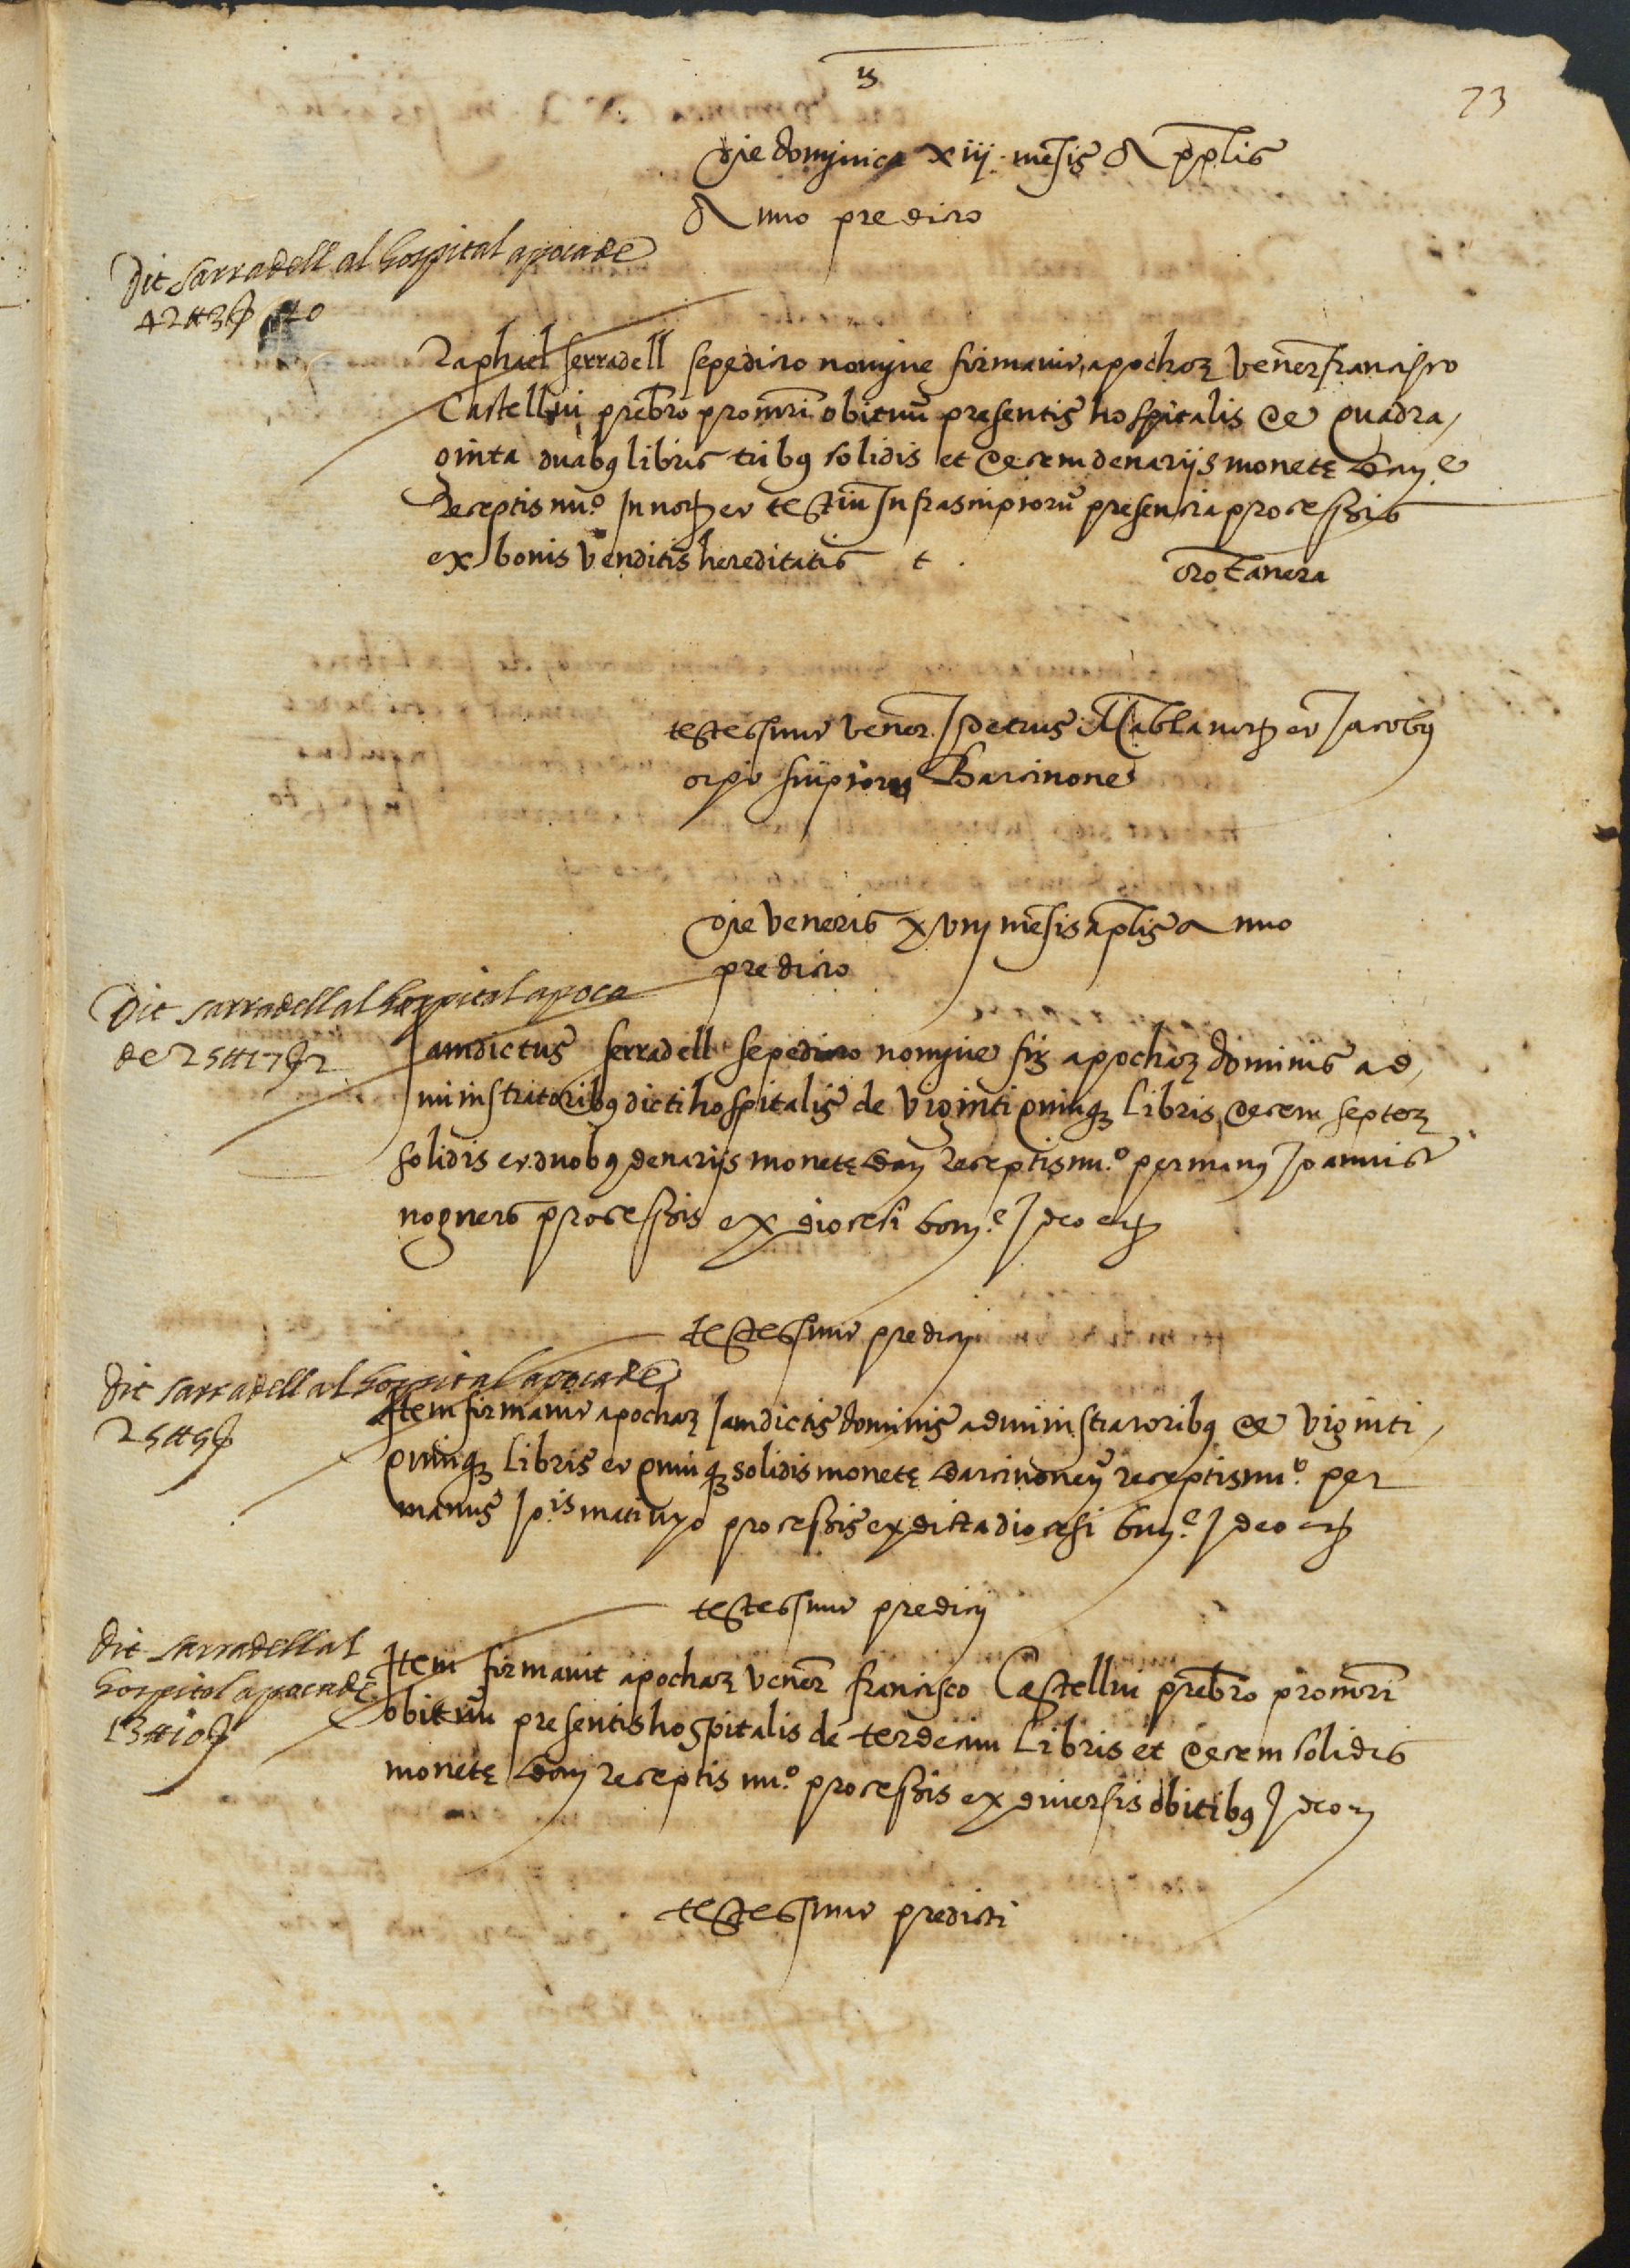 23
die dominica xiij mensis Aprilis
Anno predicto
Dit Sarradell al hospital apoca de
42 ll 3 s 10
Raphael serradell sepedicto nomine firmavit apocham vener francisco
Castellvi prebro promri obituum presentis hospitalis de quadra/
ginta duabus libris tribus solidis et decem denarijs monete
Receptis nu.º In not et testium Infrascriptorum presencia processis
ex bonis venditis hereditatis t.
testes sunt vener. petrus Mablanch et Jacobus
scriptores Barcinone
die veneris xviij mensis aprilis Anno
predicto
Dit sarradell al hospital apoca
de 25 ll 17 s 2
Jamdictus serradell sepedicto nomine fir apocham dominis ad/
ministratoribus dicti hospitalis de viginti quinque libris decem septem
solidis et duobus denarijs monete Bar receptis nu.º per manus Joannis
noguers processis ex diocesi Ideo etc
testes sunt predicti
Dit sarradell al hospital apoca de
25 ll 5 s
Item firmavit apocham Jamdictis dominis administratoribus de viginti/
quinque libris et quinque solidis monete barcinonen receptis nu.º per
manus Jois processis ex dicta diocesi Ideo etc
testes sunt predicti
Dit sarradell al
hospital apoca de
13 ll 10 s
Item firmavit apocham vener francisco Castellvi prebro promri
obituum presentis hospitalis de terdecim libris et decem solidis
monete Bar receptis nu.º processis ex diversis obitibus Ideo etc
testes sunt predicti